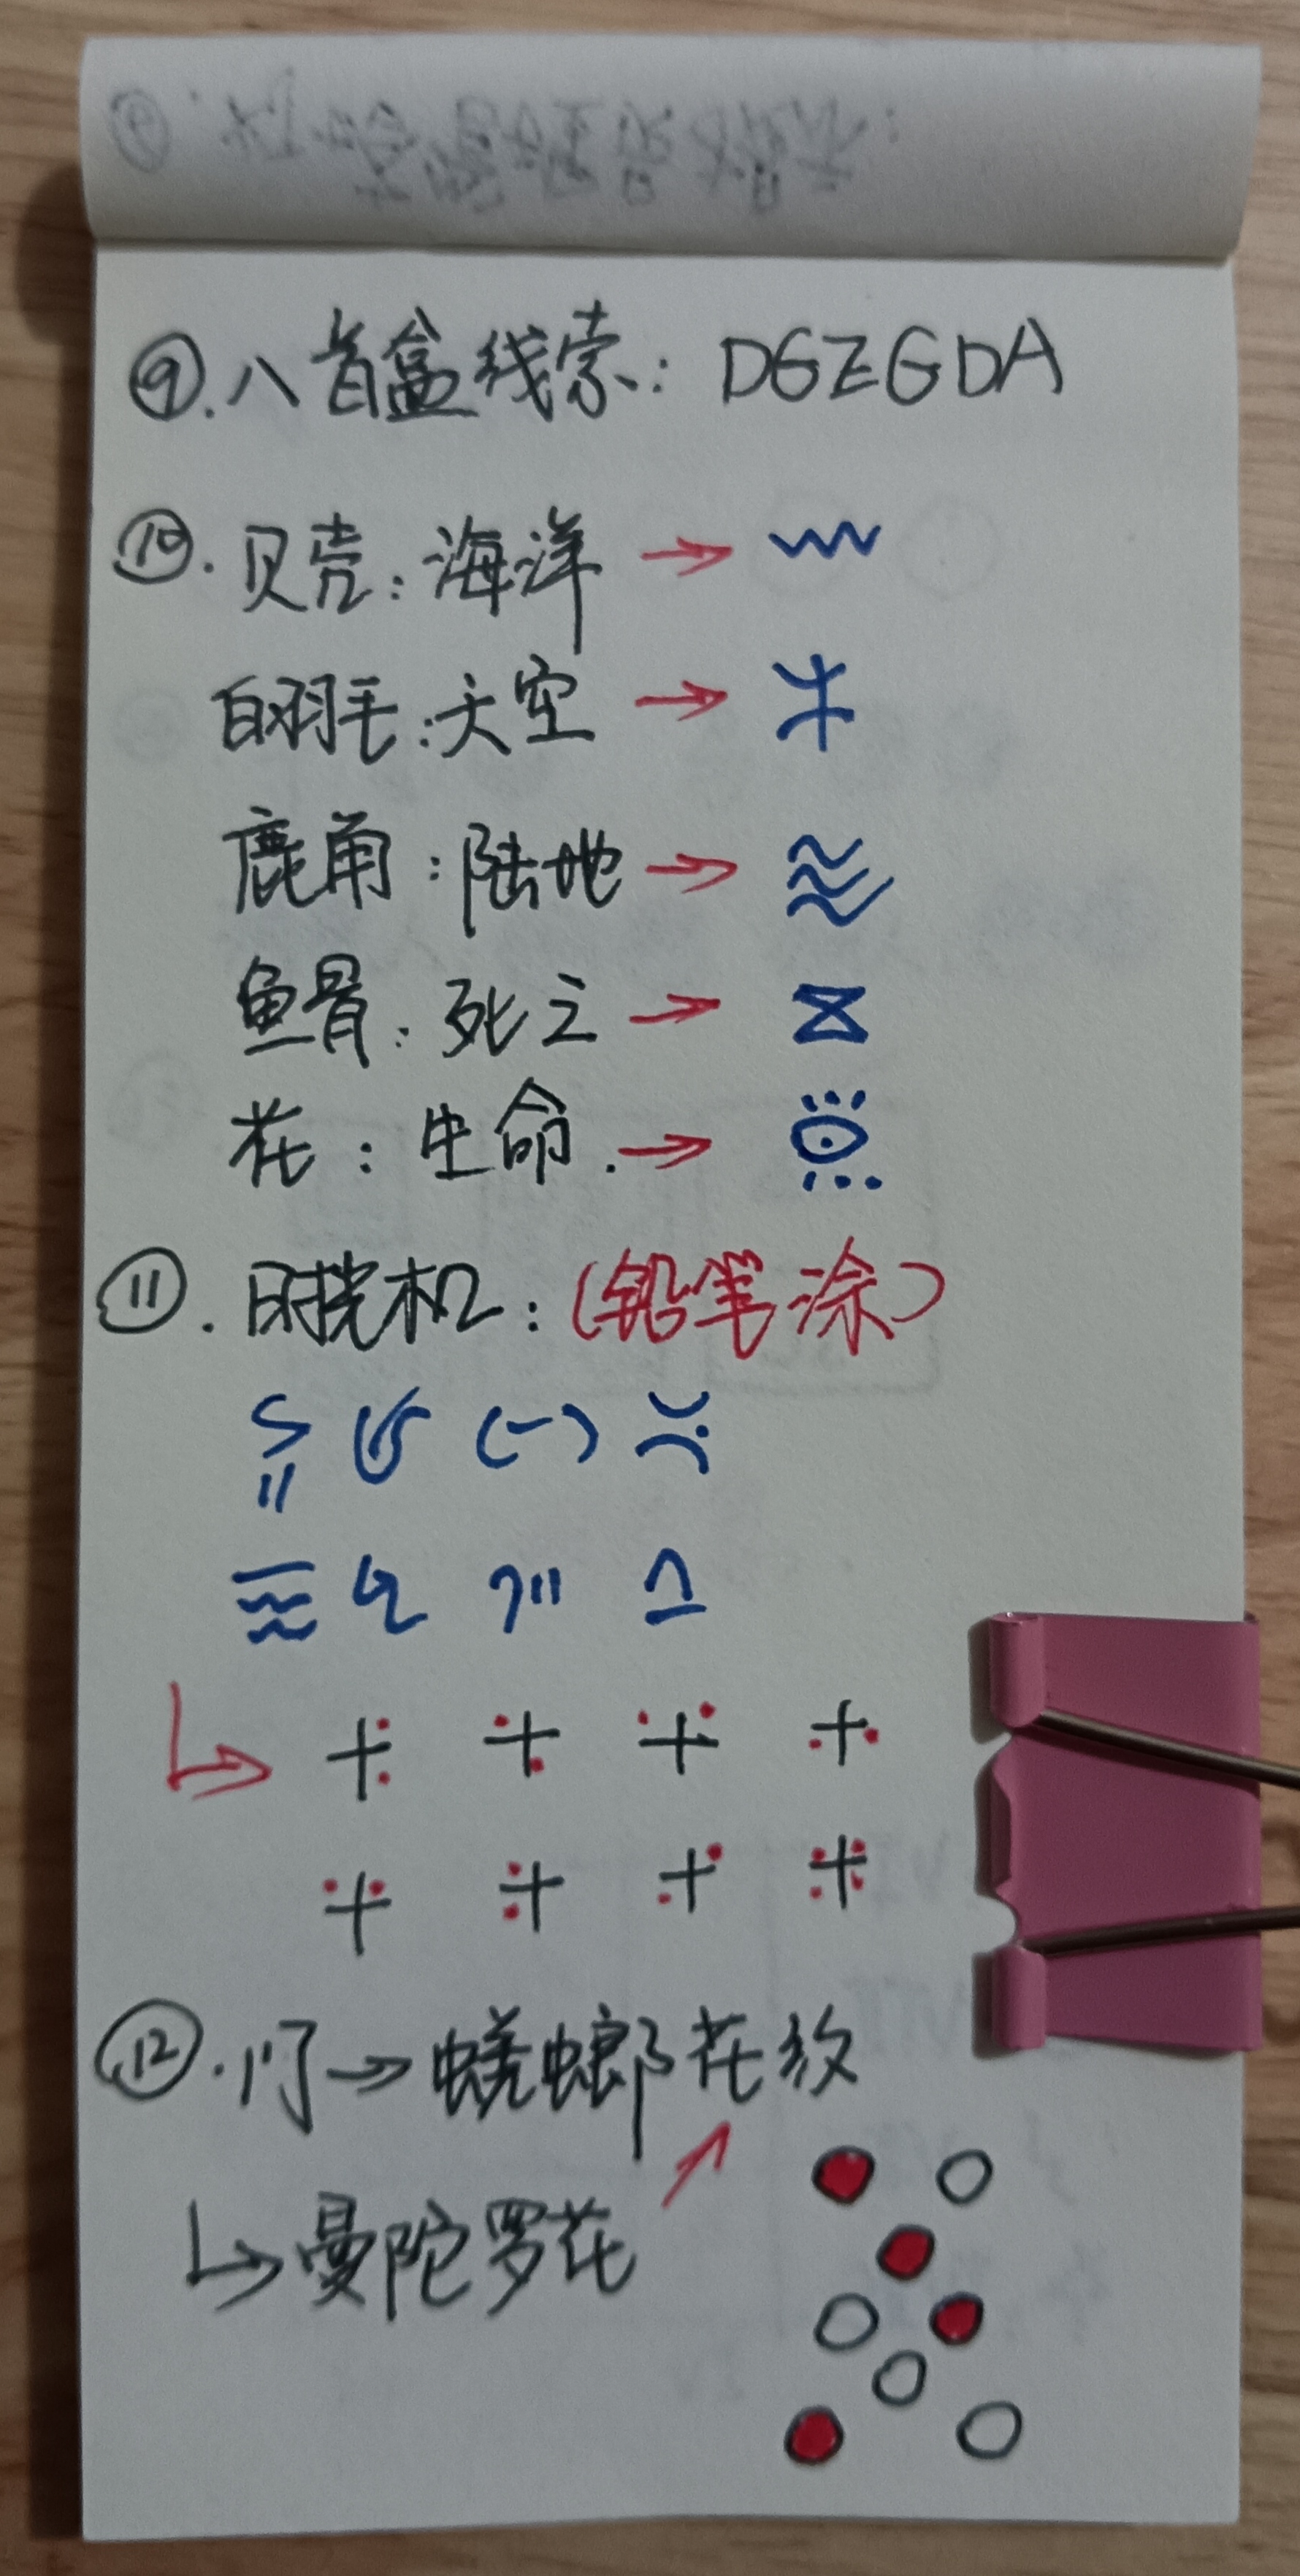 ⑨. 八音盒线索: DGEGDA
⑩. 贝壳: 海洋 →
白羽毛: 天空 →
鹿角: 陆地 →
鱼骨: 死亡 →
花: 生命. →
⑪.
(铅笔涂)
⑫. 门 → 蟑螂花纹
↳ 曼陀罗花